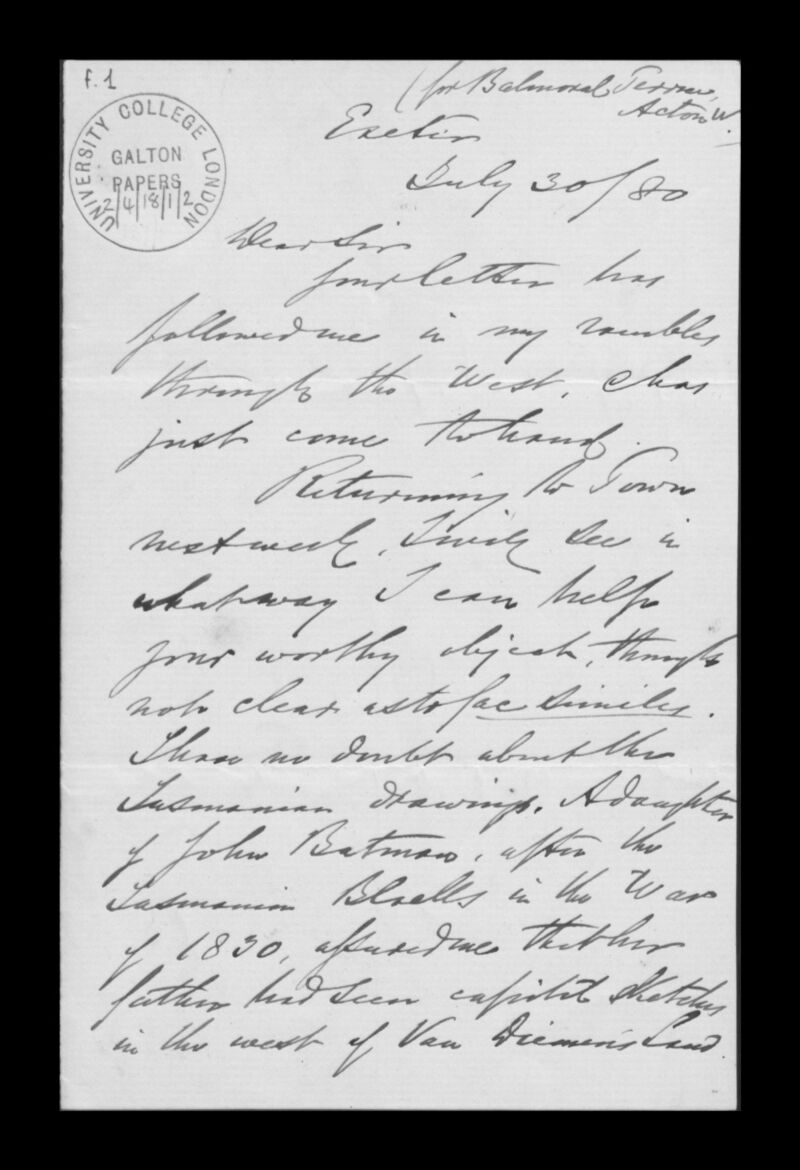 f. 1
UNIVERSITY COLLEGE LONDON
GALTON
PAPERS
2/4/18/1/2
(for Balmoral Terrace,
Acton W.
Exeter
July 30/80
Dear Sir
Your letter has
followed me in my rambles
through the West, & has
just come to hand.
Returning to Town
next week, I will see in
what way I can help
your worthy object, though
not clear as to fac similes.
I have no doubt about the
Tasmanian drawings. A daughter
of John Batman, after the
Tasmanian Blacks in the War
of 1830, assured me that her
father had seen capital sketches
in the west of Van Diemen's Land